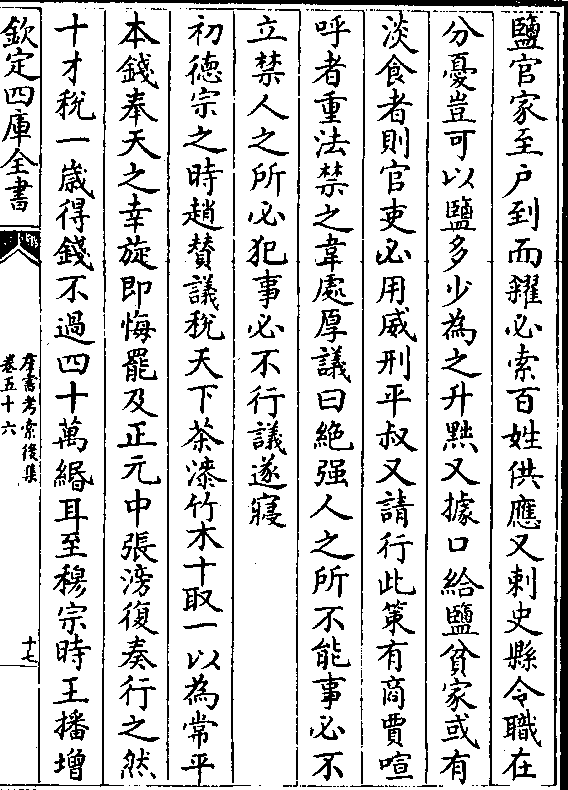 鹽官家至户到而糶必索百姓供應又刺史縣令職在
分憂豈可以鹽多少為之升黜又據口給鹽貧家或有
淡食者則官吏必用威刑平叔又請行此策有商賈喧
呼者重法禁之韋處厚議曰絶强人之所不能事必不
立禁人之所必犯事必不行議遂寢
初徳宗之時趙賛議稅天下茶漆竹木十取一以為常平
本錢奉天之幸旋即悔罷及正元中張滂復奏行之然
十才稅一歲得錢不過四十萬緡耳至穆宗時王播增
欽定四庫全書
羣書考索後集
卷五十六
十七